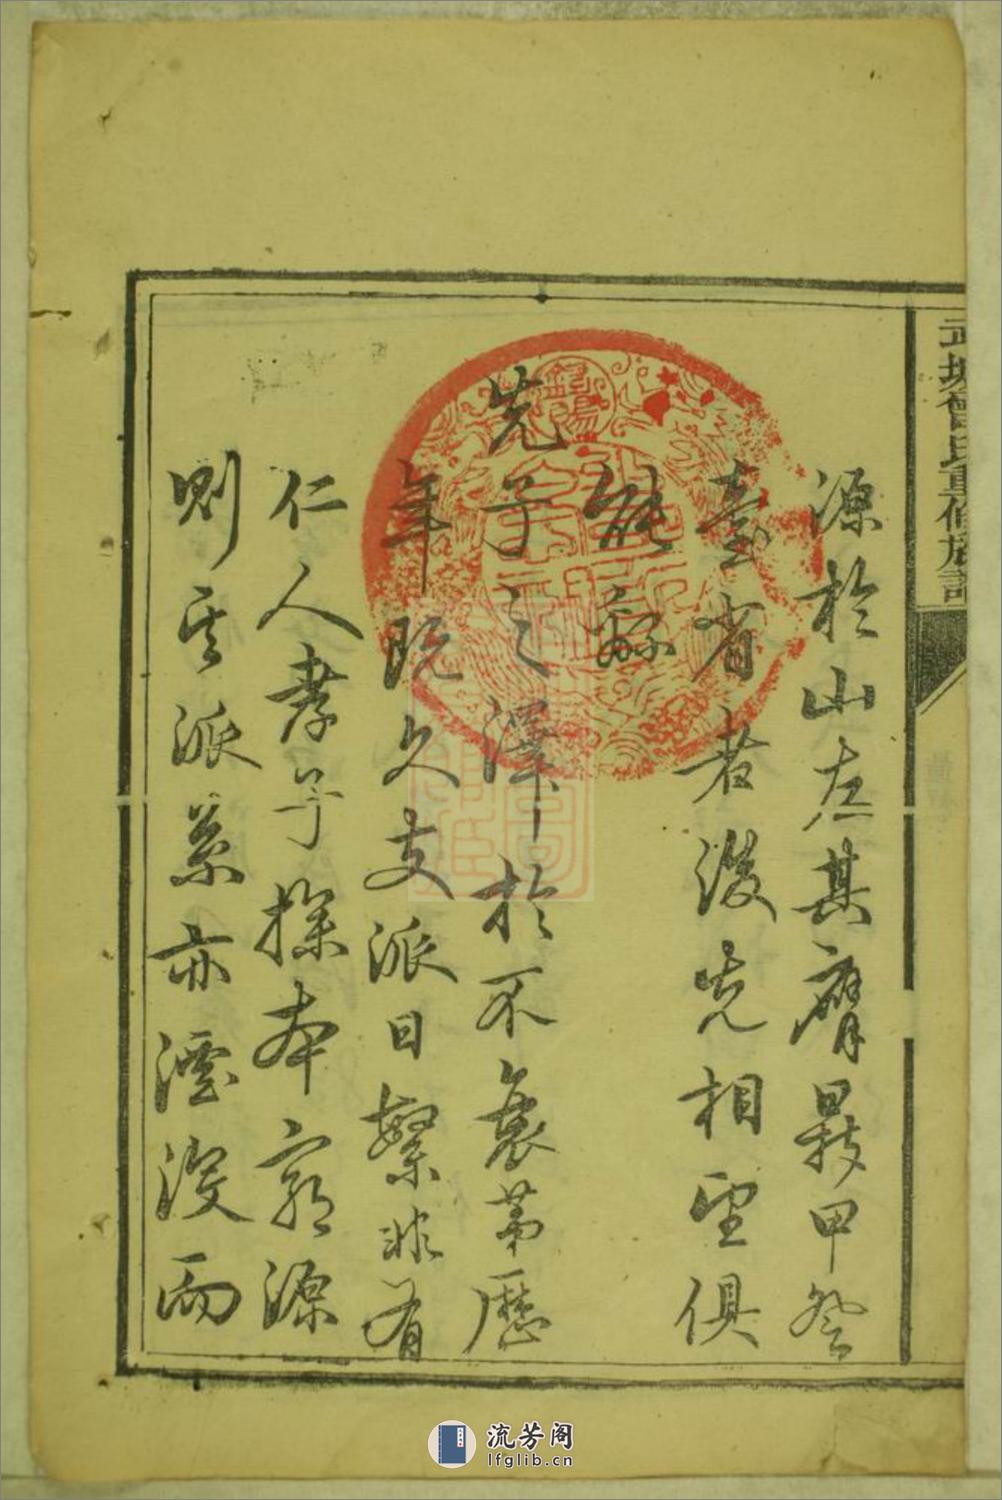 武城曾氏重修族譜
源於山左其膺最甲登
臺省者後先相望俱
能
先子之澤於不衰第歷
年既久支派日繁非有
仁人孝子探本窮源
則其派系亦湮沒而
流芳阁
lfglib.cn